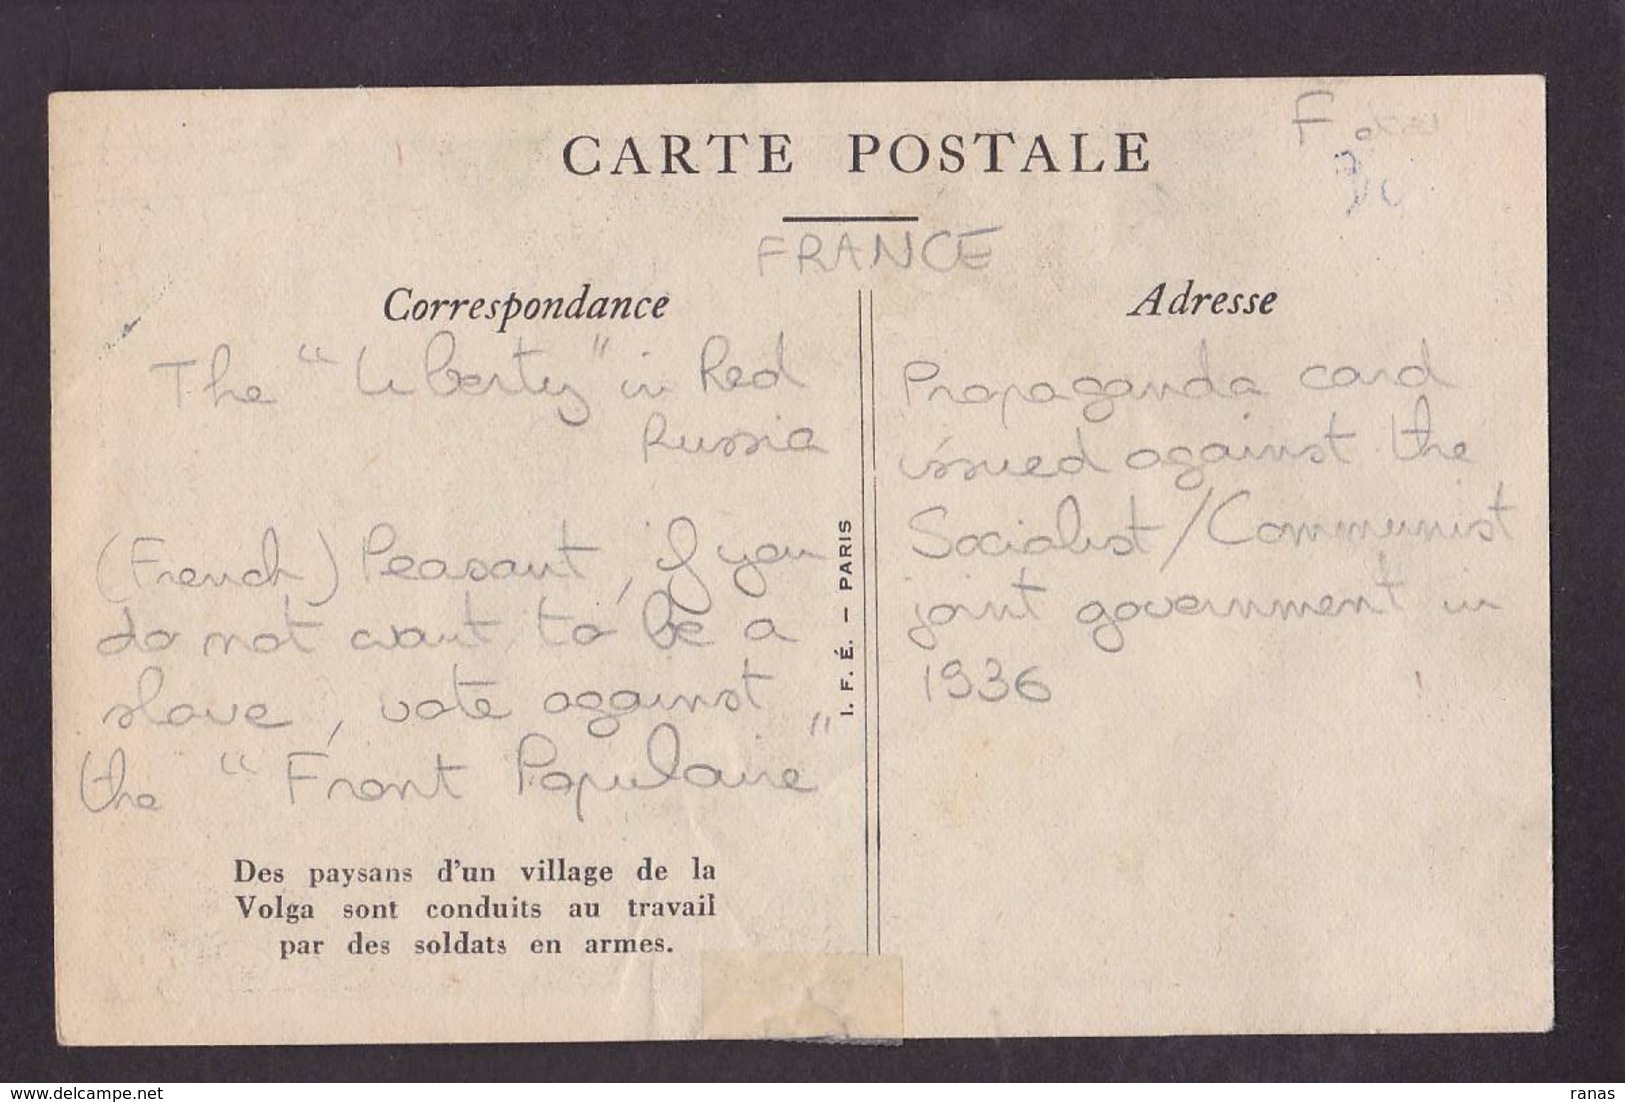 CARTE POSTALE
F
FRANCE
Correspondance
The "Liberty" in Red
Russia
(French) Peasant, if you
do not want to be a
slave, vote against
the "Front Populaire"
Des paysans d'un village de la
Volga sont conduits au travail
par des soldats en armes.
I. F. É. – PARIS
Adresse
Propaganda card
issued against the
Socialist/Communist
joint government in
1936
www.delcampe.net
ranas